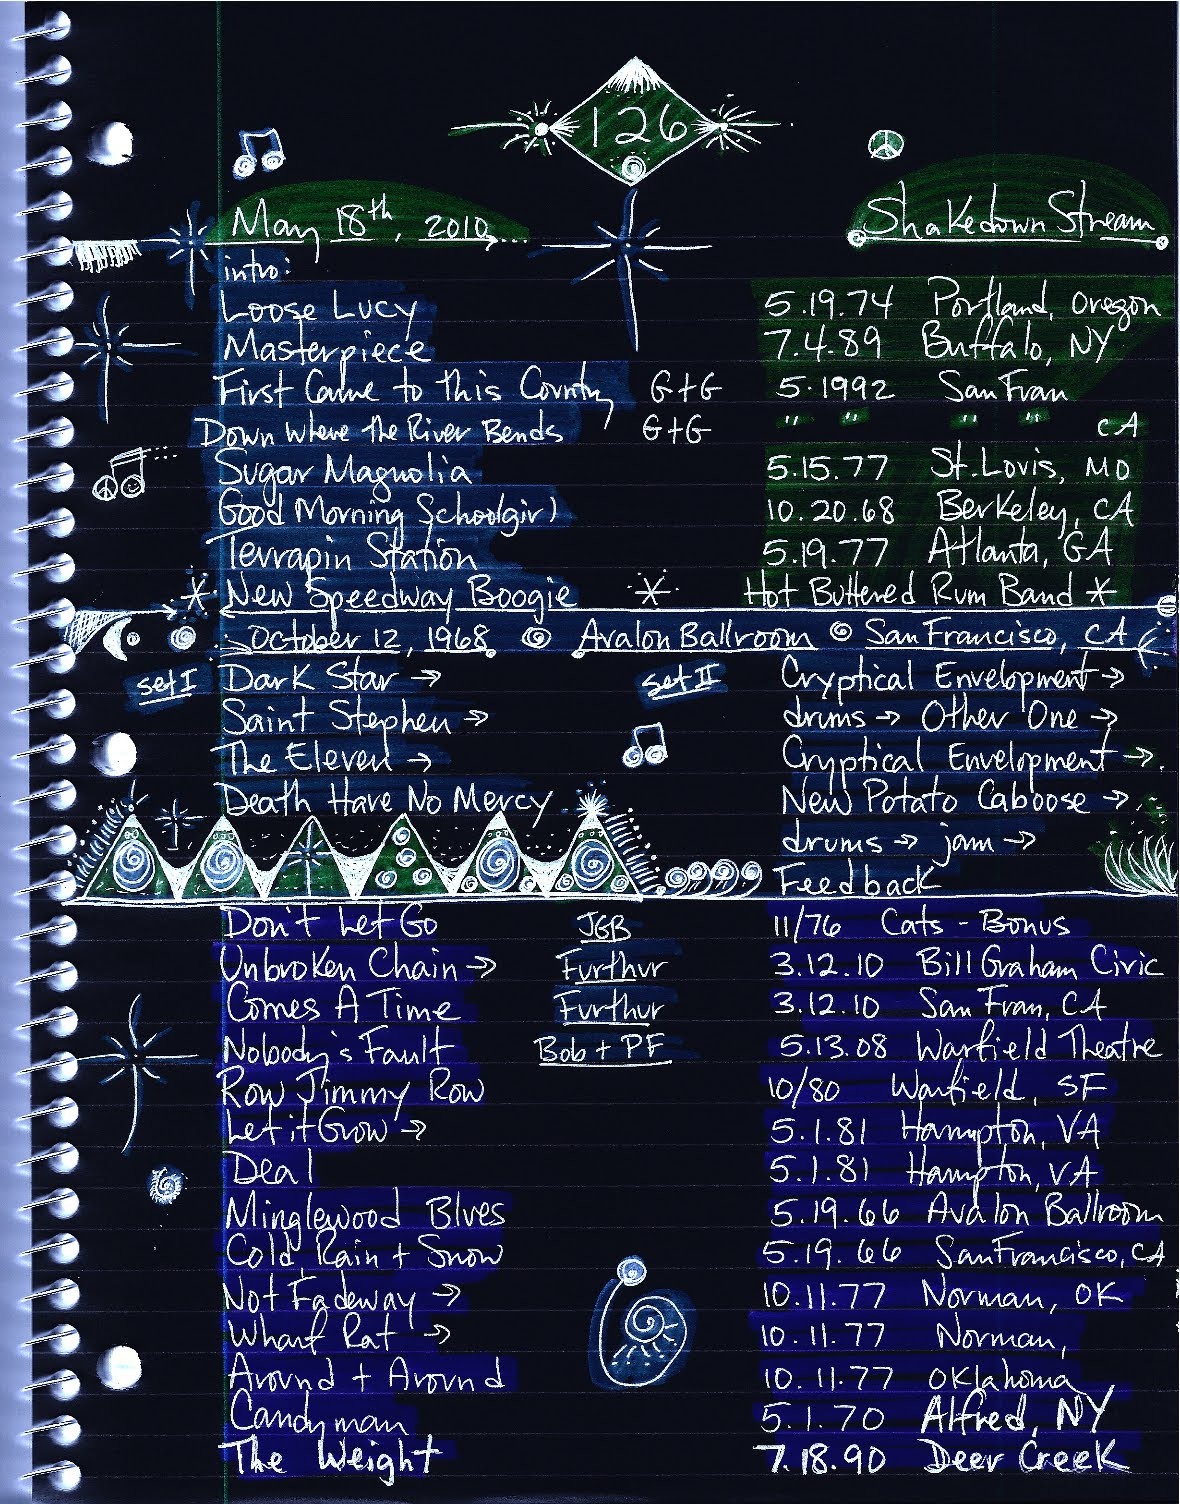 126
May 18th, 2010 Shakedown Stream
intro:
Loose Lucy 5.19.74 Portland, Oregon
Masterpiece 7.4.89 Buffalo, NY
First Came to this Country G+G 5.1992 San Fran
Down Where the River Bends G+G " " " " CA
Sugar Magnolia 5.15.77 St. Louis, MO
Good Morning Schoolgirl 10.20.68 Berkeley, CA
Terrapin Station 5.19.77 Atlanta, GA
* New Speedway Boogie * Hot Buttered Rum Band *
October 12, 1968 @ Avalon Ballroom @ San Francisco, CA
set I Dark Star → set II Cryptical Envelopment →
Saint Stephen → drums → Other One →
The Eleven → Cryptical Envelopment →
Death Have No Mercy New Potato Caboose →
drums → jam →
Feedback
Don't Let Go JGB 11/76 Cats - Bonus
Unbroken Chain → Furthur 3.12.10 Bill Graham Civic
Comes A Time Furthur 3.12.10 San Fran, CA
Nobody's Fault Bob + PF 5.13.08 Warfield Theatre
Row Jimmy Row 10/80 Warfield, SF
Let it Grow → 5.1.81 Hampton, VA
Deal 5.1.81 Hampton, VA
Minglewood Blues 5.19.66 Avalon Ballroom
Cold, Rain + Snow 5.19.66 San Francisco, CA
Not Fadeway → 10.11.77 Norman, OK
Wharf Rat → 10.11.77 Norman,
Around + Around 10.11.77 Oklahoma
Candyman 5.1.70 Alfred, NY
The Weight 7.18.90 Deer Creek